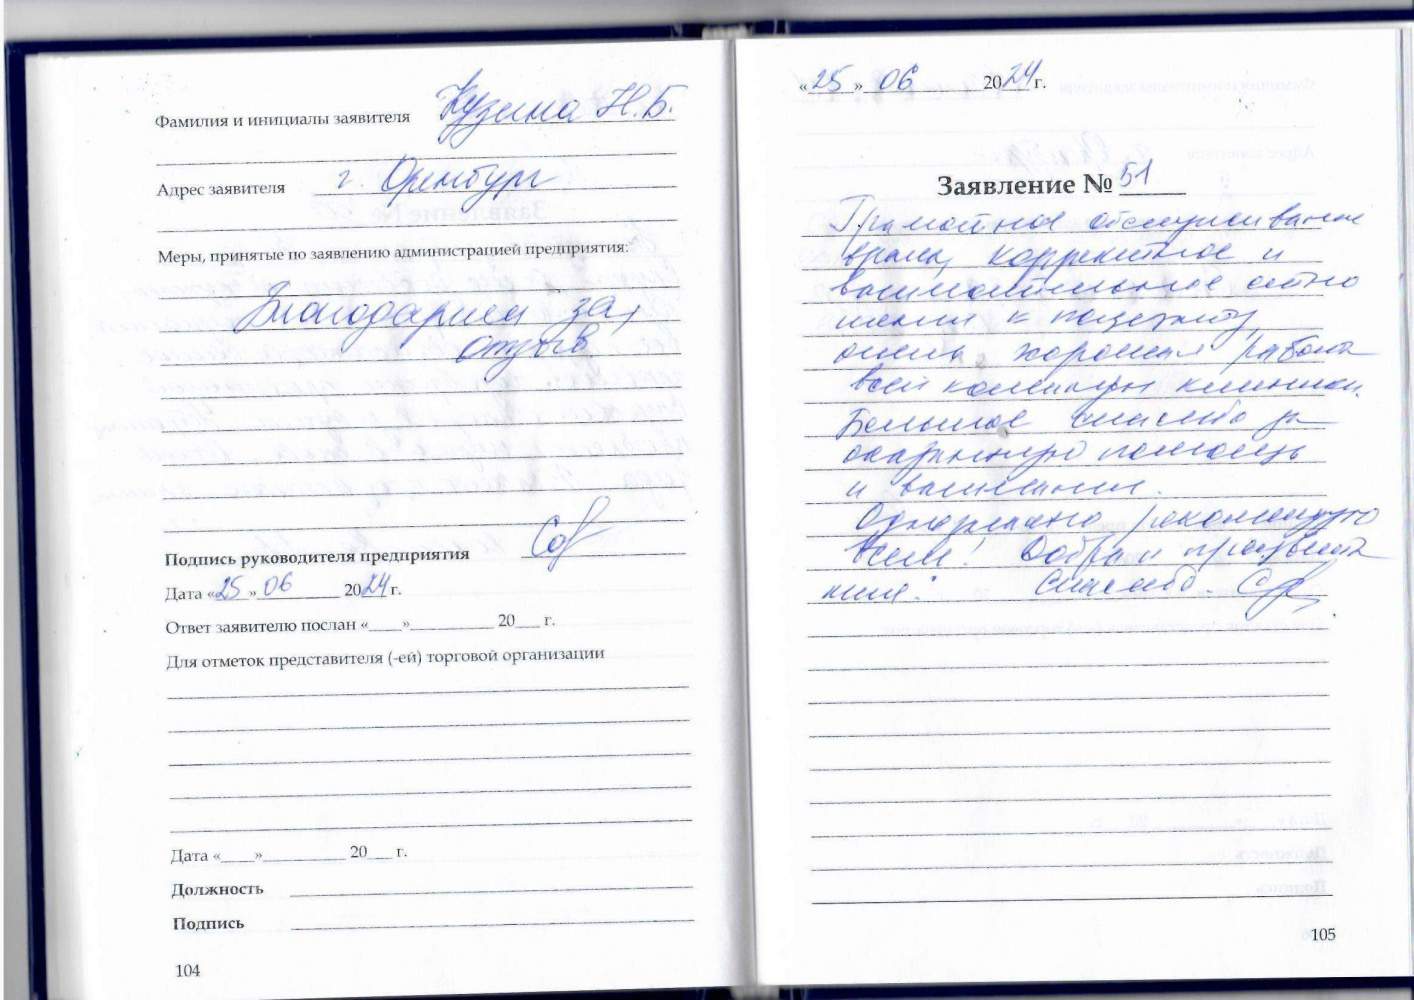 Фамилия и инициалы заявителя Кузина Н.Б.
Адрес заявителя г. Оренбург
Меры, принятые по заявлению администрацией предприятия:
Благодарим за
отзыв
Подпись руководителя предприятия
Дата «25» 06 2024 г.
Ответ заявителю послан «____»__________ 20___ г.
Для отметок представителя (-ей) торговой организации
Дата «____»__________ 20___ г.
Должность
Подпись
104
«25» 06 2024 г.
Заявление № 51
Грамотное обслуживание
врача, корректное и
внимательное отно
шение к пациенту,
очень хорошая работа
всей команды клиники.
Большое спасибо за
оказанную помощь
и внимание.
Однозначно рекомендую
всем! Добра и процвета
ния! Спасибо.
105